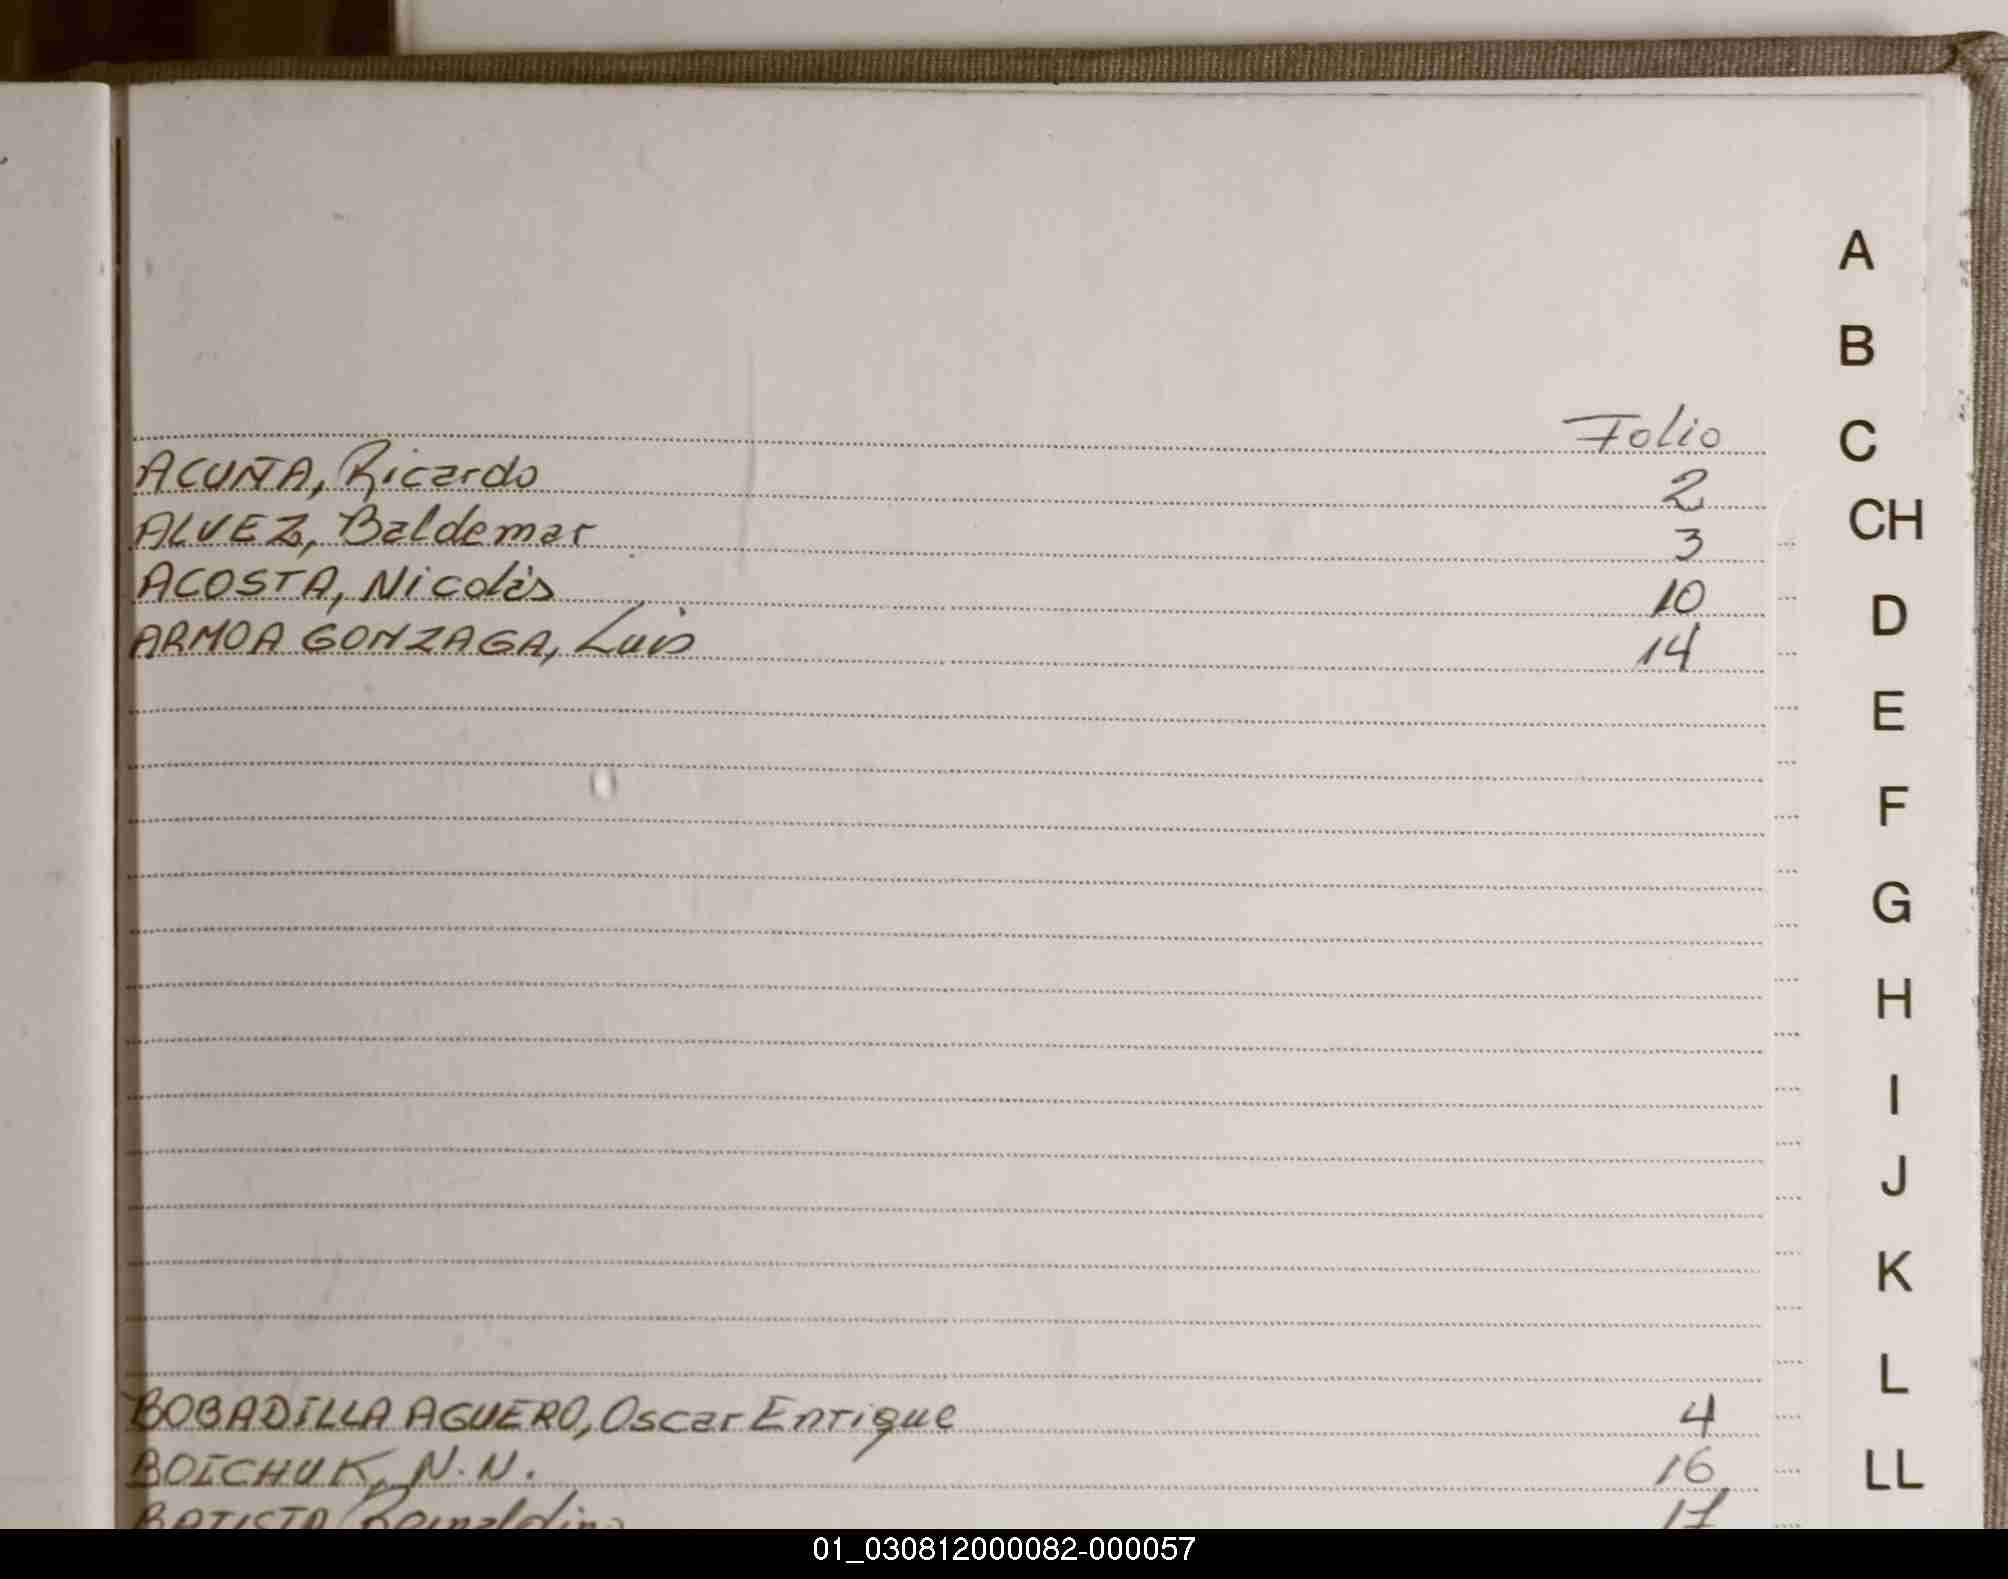 Folio
ACUÑA, Ricardo 2
ALVEZ, Baldemar 3
ACOSTA, Nicolás 10
ARMOA GONZAGA, Luis 14
BOBADILLA AGUERO, Oscar Enrique 4
BOICHUK, N.N. 16
BATISTA, Reinaldino 17
A
B
C
CH
D
E
F
G
H
I
J
K
L
LL
01_030812000082-000057